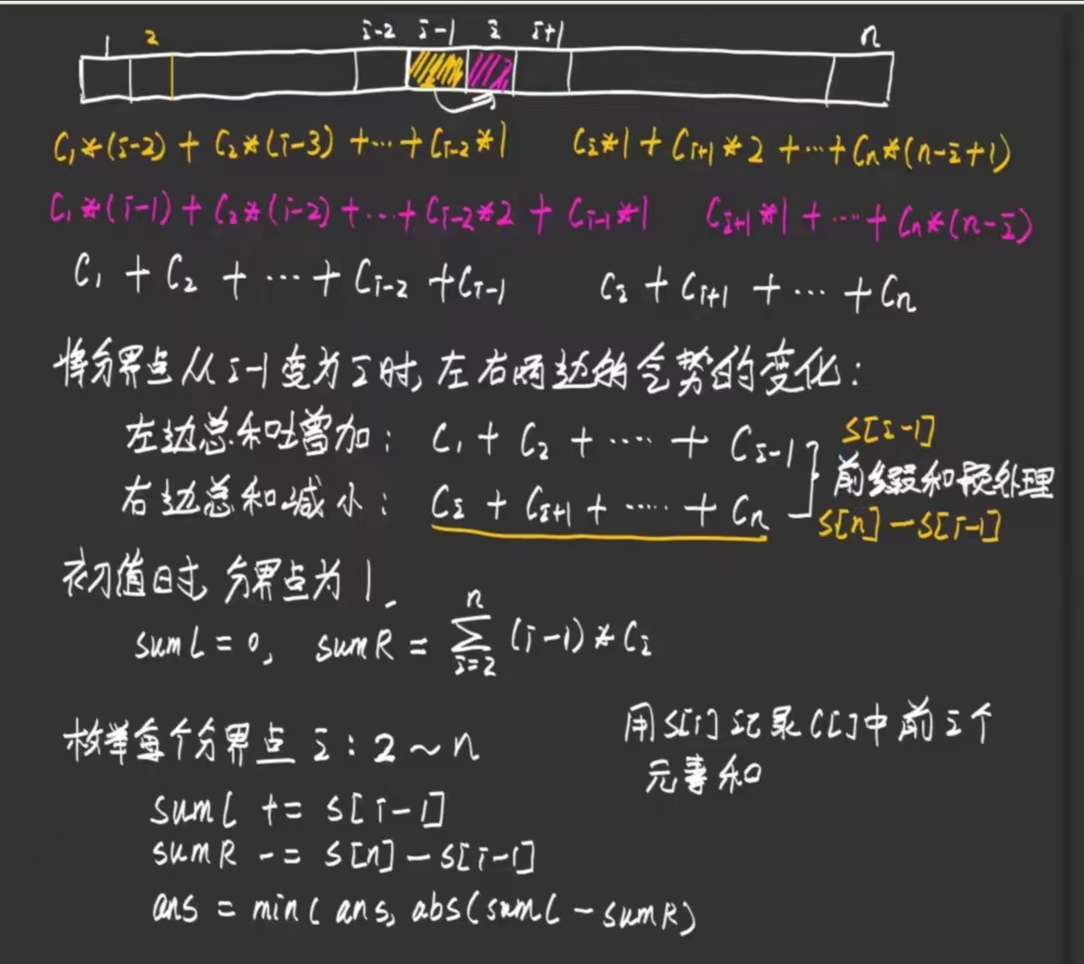 1 2 i-2 i-1 i i+1 n
C₁*(i-2) + C₂*(i-3) + … + Cᵢ₋₂*1 Cᵢ*1 + Cᵢ₊₁*2 + … + Cₙ*(n-i+1)
C₁*(i-1) + C₂*(i-2) + … + Cᵢ₋₂*2 + Cᵢ₋₁*1 Cᵢ₊₁*1 + … + Cₙ*(n-i)
C₁ + C₂ + … + Cᵢ₋₂ + Cᵢ₋₁ Cᵢ + Cᵢ₊₁ + … + Cₙ
将分界点从i-1变为i时,左右两边的气势的变化:
左边总和增加: C₁ + C₂ + …… + Cᵢ₋₁ S[i-1]
前缀和预处理
右边总和减小: Cᵢ + Cᵢ₊₁ + …… + Cₙ S[n]-S[i-1]
初值时,分界点为1,
sumL = 0, sumR = ∑ⁿᵢ₌₂ (i-1)*Cᵢ
枚举每个分界点i:2~n
用S[i]记录C[]中前i个
元素和
sumL += S[i-1]
sumR -= S[n]-S[i-1]
ans = min(ans, abs(sumL-sumR)